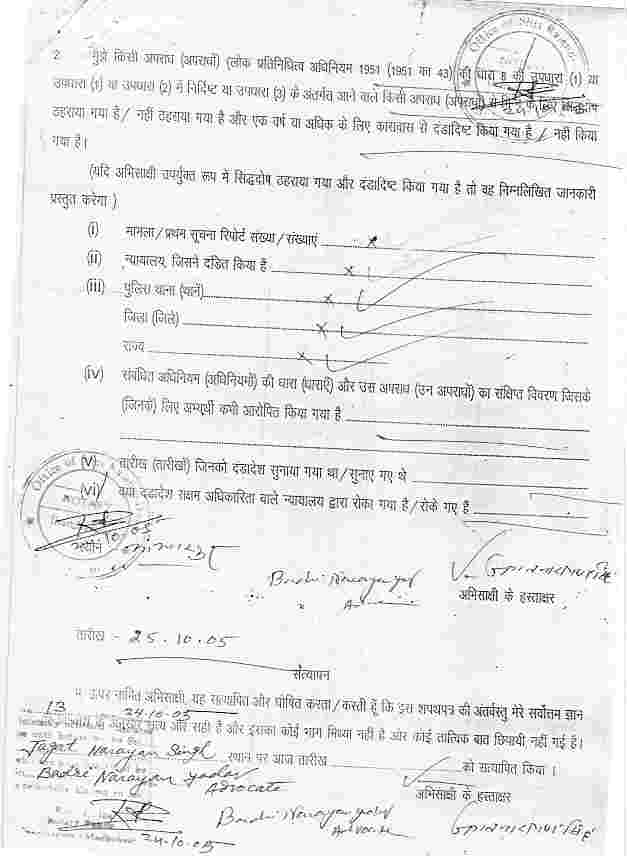 Office of Shri
2. मुझे किसी अपराध (अपराधों) (लोक प्रतिनिधित्व अधिनियम 1951 (1951 का 43) की धारा 8 की उपधारा (1) या
उपधारा (1) या उपधारा (2) में निर्दिष्ट या उपधारा (3) के अंतर्गत आने वाले किसी अपराध (अपराधों)
ठहराया गया है / नहीं ठहराया गया है और एक वर्ष या अधिक के लिए कारावास से दंडादिष्ट किया गया है / नहीं किया
गया है।
(यदि अभिसाक्षी उपर्युक्त रूप में सिद्धदोष ठहराया गया और दंडादिष्ट किया गया है तो वह निम्नलिखित जानकारी
प्रस्तुत करेगा )
(i) मामला / प्रथम सूचना रिपोर्ट संख्या / संख्याएं x
(ii) न्यायालय, जिसने दंडित किया है x
(iii) पुलिस थाना (थाने) x
जिला (जिले) x
राज्य x
(iv) संबंधित अधिनियम (अधिनियमों) की धारा (धाराएँ) और उस अपराध (उन अपराधों) का संक्षिप्त विवरण जिसके
(जिनके) लिए अभ्यर्थी कभी आरोपित किया गया है
(v) तारीख (तारीखों) जिनको दंडादेश सुनाया गया था / सुनाए गए थे
(vi) क्या दंडादेश सक्षम अधिकारिता वाले न्यायालय द्वारा रोका गया है / रोके गए हैं
Office of
NOTARY
स्थान
Badri Narayan yadav
अभिसाक्षी के हस्ताक्षर
तारीख - 25.10.05
सत्यापन
मैं ऊपर नामित अभिसाक्षी, यह सत्यापित और घोषित करता / करती हूँ कि इस शपथपत्र की अंतर्वस्तु मेरे सर्वोत्तम ज्ञान
13 24.10.05
और सही है और इसका कोई भाग मिथ्या नहीं है और कोई तात्विक बात छिपायी नहीं गई है।
Jagat Narayan Singh स्थान पर आज तारीख को सत्यापित किया ।
Badri Narayan yadav
Advocate
अभिसाक्षी के हस्ताक्षर
Badri Narayan yadav
Advocate
24.10.05